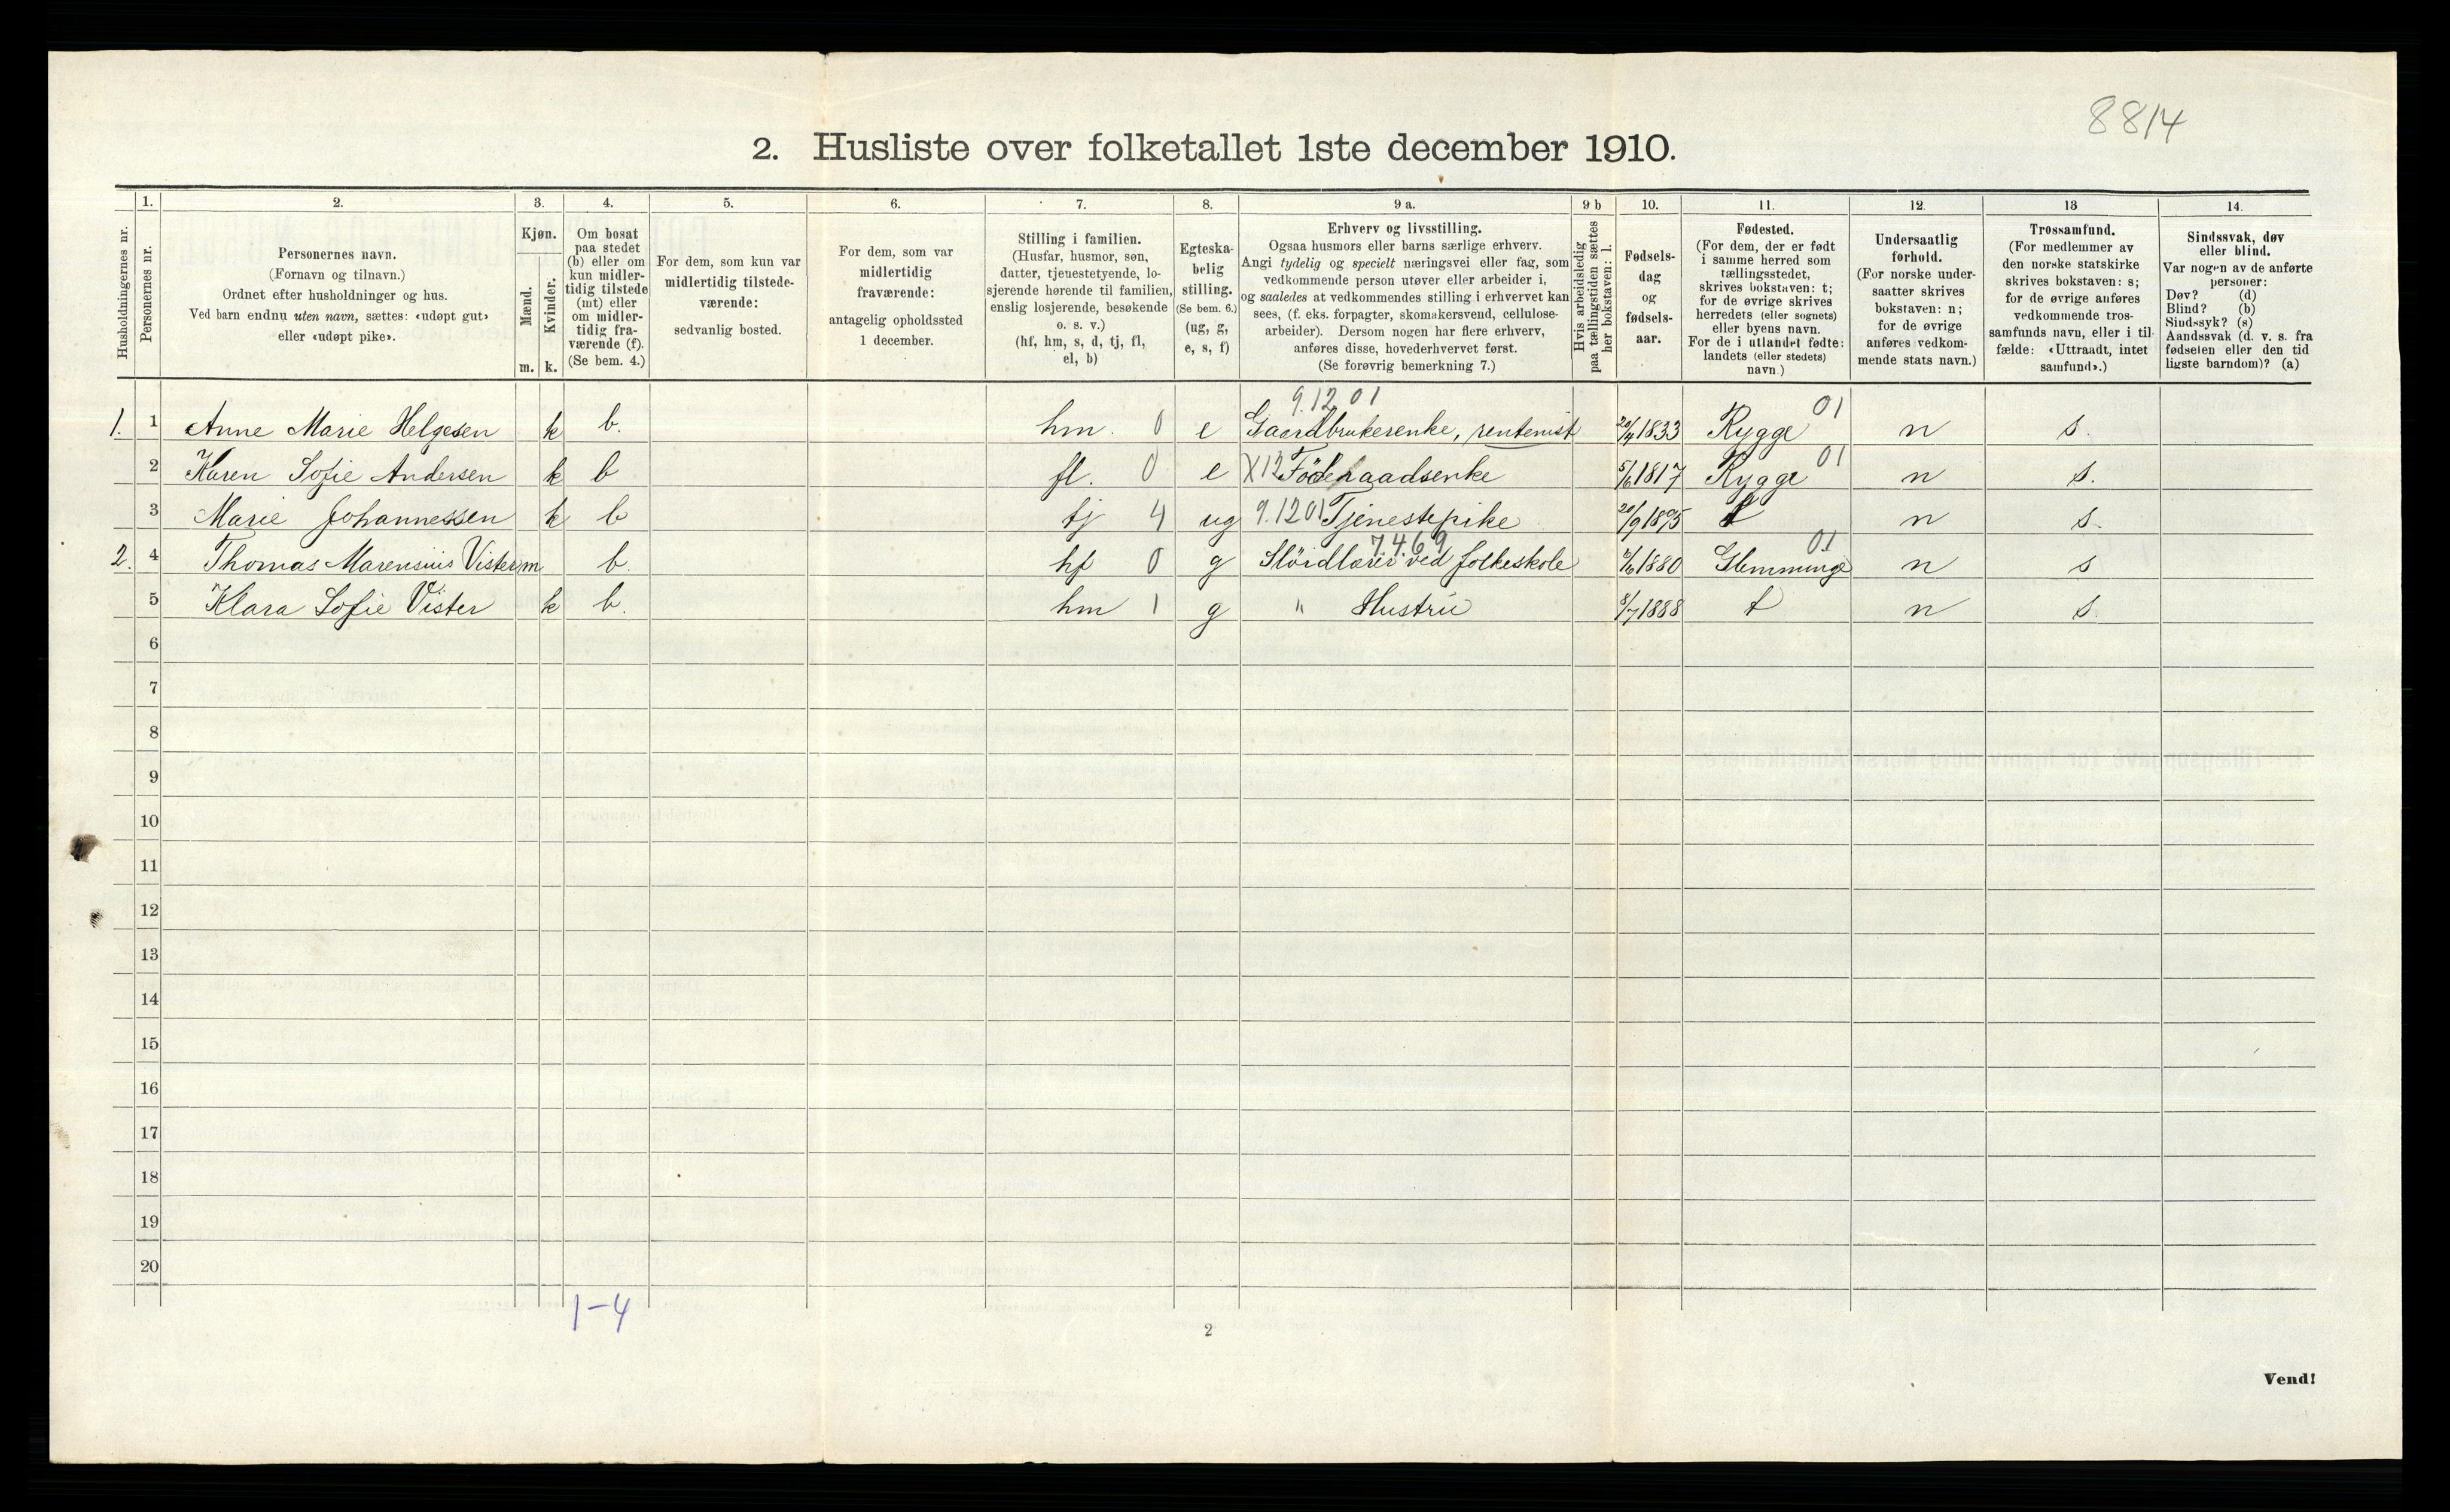 8814
2. Husliste over folketallet 1ste december 1910.
1. 2. 3. 4. 5. 6. 7. 8. 9 a. 9 b 10. 11. 12. 13 14.
Husholdningernes nr.
Personernes nr.
Personernes navn.
(Fornavn og tilnavn.)
Ordnet efter husholdninger og hus.
Ved barn endnu uten navn, sættes: «udøpt gut»
eller «udøpt pike».
Kjøn.
Mænd.
Kvinder.
m. k.
Om bosat
paa stedet
(b) eller om
kun midler-
tidig tilstede
(mt) eller
om midler-
tidig fra-
værende (f).
(Se bem. 4.)
For dem, som kun var
midlertidig tilstede-
værende:
sedvanlig bosted.
For dem, som var
midlertidig
fraværende:
antagelig opholdssted
1 december.
Stilling i familien.
(Husfar, husmor, søn,
datter, tjenestetyende, lo-
sjerende hørende til familien,
enslig losjerende, besøkende
o. s. v.)
(hf, hm, s, d, tj, fl,
el, b)
Egteska-
belig
stilling.
(Se bem. 6.)
(ug, g,
e, s, f)
Erhverv og livsstilling.
Ogsaa husmors eller barns særlige erhverv.
Angi tydelig og specielt næringsvei eller fag, som
vedkommende person utøver eller arbeider i,
og saaledes at vedkommendes stilling i erhvervet kan
sees, (f. eks. forpagter, skomakersvend, cellulose-
arbeider). Dersom nogen har flere erhverv,
anføres disse, hovederhvervet først.
(Se forøvrig bemerkning 7.)
Hvis arbeidsledig
paa tællingstiden sættes
her bokstaven: l.
Fødsels-
dag
og
fødsels-
aar.
Fødested.
(For dem, der er født
i samme herred som
tællingsstedet,
skrives bokstaven: t;
for de øvrige skrives
herredets (eller sognets)
eller byens navn.
For de i utlandet fødte:
landets (eller stedets)
navn.)
Undersaatlig
forhold.
(For norske under-
saatter skrives
bokstaven: n;
for de øvrige
anføres vedkom-
mende stats navn.)
Trossamfund.
(For medlemmer av
den norske statskirke
skrives bokstaven: s;
for de øvrige anføres
vedkommende tros-
samfunds navn, eller i til-
fælde: «Uttraadt, intet
samfund».)
Sindssvak, døv
eller blind.
Var nogen av de anførte
personer:
Døv? (d)
Blind? (b)
Sindssyk? (s)
Aandssvak (d. v. s. fra
fødselen eller den tid
ligste barndom)? (a)
9.12.01 01
1. 1 Anne Marie Helgesen k b. hm. 0 e Gaardbrukerenke, rentenist 20/4 1833 Rygge n s.
01
2 Karen Sofie Andersen k b fl. 0 e X12 Föderaadsenke 5/6 1817 Rygge n s.
3 Marie Johannessen k b tj 4 ug 9.1201 Tjenestepike 20/9 1895 t n s.
7.4.69 01
2. 4 Thomas Marensius Vister m b. hf 0 g Slöidlærer ved folkeskole /6 1880 Glemminge n s
5 Klara Sofie Vister k b. hm 1 g " Hustru 8/7 1888 t n s.
6
7
8
9
10
11
12
13
14
15
16
17
18
19
20
1-4
2
Vend!